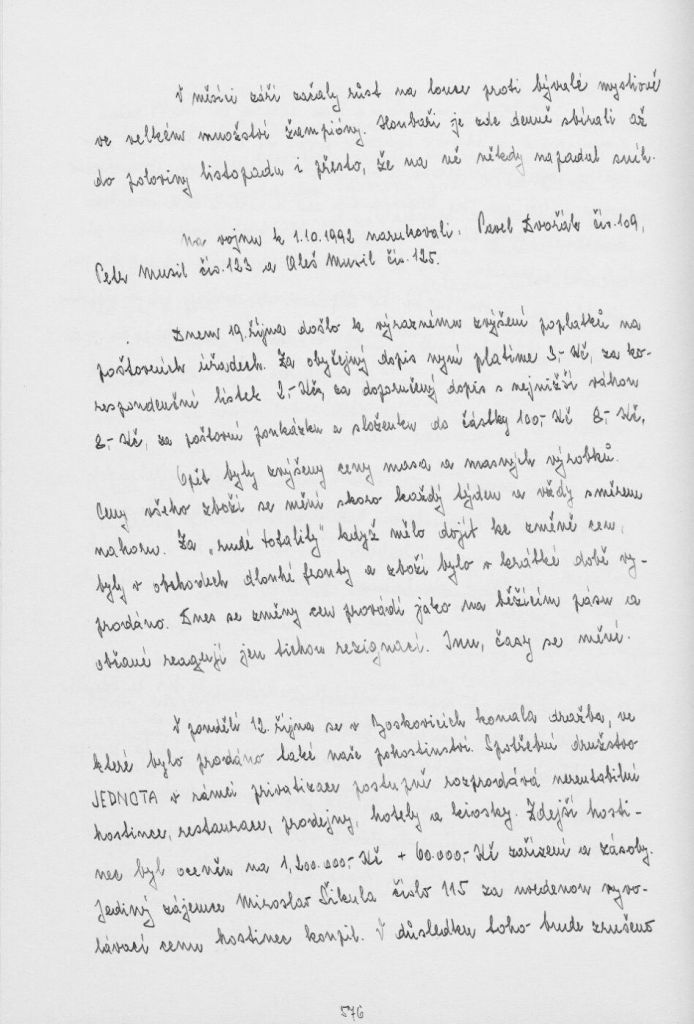 V měsíci září začaly růst na louce proti bývalé myslivně
ve velkém množství žampióny. Houbaři je zde denně sbírali až
do poloviny listopadu i přesto, že na ně někdy napadal sníh.
Na vojnu k 1.10.1992 narukovali: Pavel Dvořák čís.109,
Petr Musil čís.123 a Aleš Musil čís.125.
Dnem 19.října došlo k výraznému zvýšení poplatků na
poštovních úřadech. Za obyčejný dopis nyní platíme 3,-Kč, za ko-
respondenční lístek 2,-Kčs, za doporučený dopis s nejnižší váhou
8,-Kč, za poštovní poukázku a složenku do částky 100,-Kč 8,-Kč.
Opět byly zvýšeny ceny masa a masných výrobků.
Ceny všeho zboží se mění skoro každý týden a vždy směrem
nahoru. Za „rudé totality" když mělo dojít ke změně cen,
byly v obchodech dlouhé fronty a zboží bylo v krátké době vy-
prodáno. Dnes se změny cen provádí jako na běžícím pásu a
občané reagují jen tichou rezignací. Inu, časy se mění.
V pondělí 12.října se v Boskovicích konala dražba, ve
které bylo prodáno také naše pohostinství. Spotřební družstvo
JEDNOTA v rámci privatizace postupně rozprodává nerentabilní
hostince, restaurace, prodejny, hotely a kiosky. Zdejší hosti-
nec byl oceněn na 1,200.000,-Kč + 60.000,-Kč zařízení a zásoby.
Jediný zájemce Miroslav Šikula číslo 115 za uvedenou vyvo-
lávací cenu hostinec koupil. V důsledku toho bude zrušeno
576